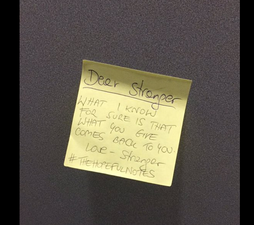 Dear Stranger
WHAT I KNOW
FOR SURE IS THAT
WHAT YOU GIVE
COMES BACK TO YOU
LOVE - Stranger
#THEHOPEFULNOTES